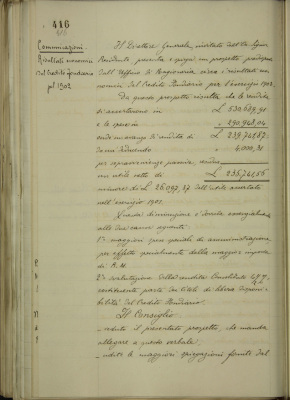 416
Comunicazioni.
Risultati
del Credito fondiario
pel 1902
Il Direttore Generale, invitato dall'On. Signor
Presidente, presenta e spiega un prospetto
dall'Ufficio di Ragioneria circa i risultati
del Credito Fondiario per l'esercizio 1902.
Da questo prospetto risulta che le rendite
si accertarono in L. 530.687,91
e le spese in " 290.945,04
ond'è un avanzo di rendita di
da cui deducendo " 4.000,31
per sopravvenienze passive
un utile netto di L. 235.741,56
minore di L. 26.097,37 dell'utile accertato
all'esercizio 1901.
Questa diminuzione è dovuta essenzialmente
alle due cause seguenti:
1° maggiori spese generali di amministrazione
per effetto specialmente della maggiore imposta
di R. M.
2° svalutazione della rendita Consolidato
costituente parte dei titoli di libera disponi-
bilità del Credito Fondiario.
Il Consiglio
- veduto il presentato prospetto, che manda
allegare a questo verbale;
- udite le maggiori spiegazioni fornite dal